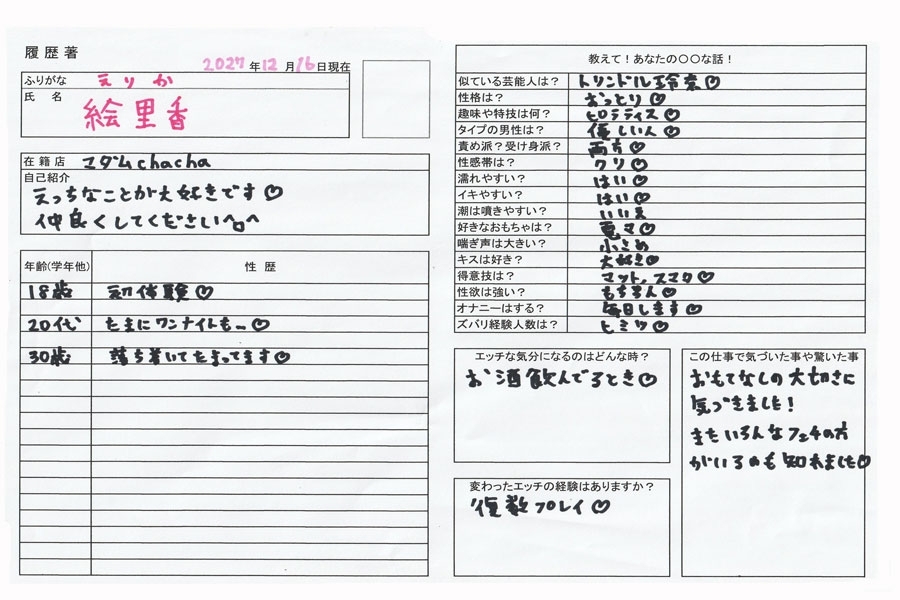 履歴著
2027年12月16日現在
ふりがな えりか
氏 名
絵里香
在籍店 マダムchacha
自己紹介
えっちなことが大好きです♡
仲良くしてくださいへ。へ
年齢(学年他) 性 歴
18歳 初体験♡
20代 たまにワンナイトも…♡
30歳 落ち着いてたまってます♡
教えて!あなたの〇〇な話!
似ている芸能人は? トリンドル玲奈♡
性格は? おっとり♡
趣味や特技は何? ピロテティス♡
タイプの男性は? 優しい人♡
責め派?受け身派? 両方♡
性感帯は? クリ♡
濡れやすい? はい♡
イキやすい? はい♡
潮は噴きやすい? いいえ
好きなおもちゃは? 電マ♡
喘ぎ声は大きい? 小さめ
キスは好き? 大好き♡
得意技は? マット、スマタ♡
性欲は強い? もちろん♡
オナニーはする? 毎日します♡
ズバリ経験人数は? ヒミツ♡
エッチな気分になるのはどんな時?
お酒飲んでるとき♡
変わったエッチの経験はありますか?
複数プレイ♡
この仕事で気づいた事や驚いた事
おもてなしの大切さに
気づきました!
またいろんなフェチの方
がいるのも知れました♡